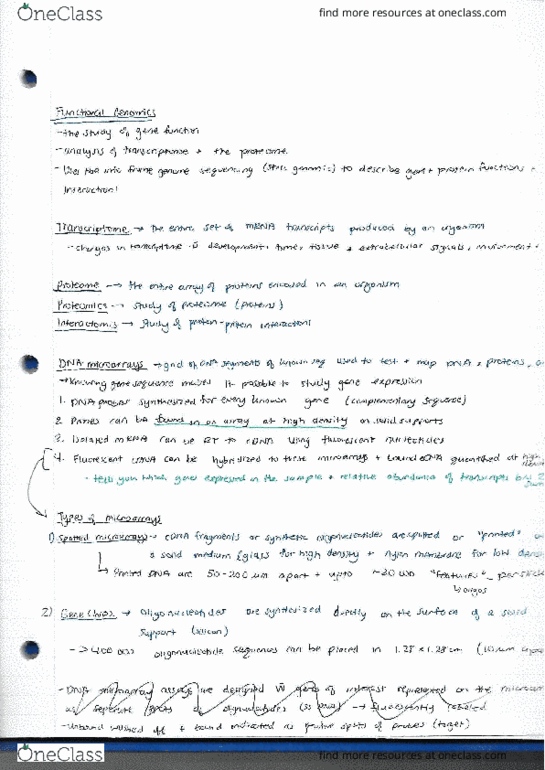 OneClass
find more resources at oneclass.com
Functional Genomics
- the study of gene function
- analysis of transcriptome + the proteome
- Uses the info from genome sequencing (static genomics) to describe gene + protein functions +
interactions
Transcriptome → The entire set of mRNA transcripts produced by an organism
- changes in transcriptome development, time, tissue + extracellular signals, environment
Proteome → the entire array of proteins encoded in an organism
Proteomics → study of proteome (proteins)
Interactomics → study of protein-protein interactions
DNA microarrays → grid of DNA segments of known seq used to test + map DNA, proteins,
Knowing gene sequence makes it possible to study gene expression
1. DNA probes synthesized for every known gene (complementary sequence)
2. Probes can be found in an array at high density on solid supports
3. Isolated mRNA can be RT to cDNA using fluorescent nucleotides
4. Fluorescent cDNA can be hybridized to these microarrays + bound cDNA quantified at high
- tells you which genes expressed in the sample + relative abundance of transcripts
Types of microarrays
1) Spotted microarrays → cDNA fragments or synthetic oligonucleotides are spotted or "printed"
a solid medium glass for high density + nylon membrane for low
Printed DNA are 50-200 um apart + up to ~30 000 "features"
oligos
2) Gene Chips → Oligonucleotides are synthesized directly on the surface of a solid
support (silicon)
- >400 000 oligonucleotide sequences can be placed in 1.28 x 1.28 cm
- DNA microarray assays are designed w of interest represented on the
as separate spots of (ss DNA) → fluorescently labeled
- unbound washed off + bound indicated as spots of probes (target)
OneClass
find more resources at oneclass.com